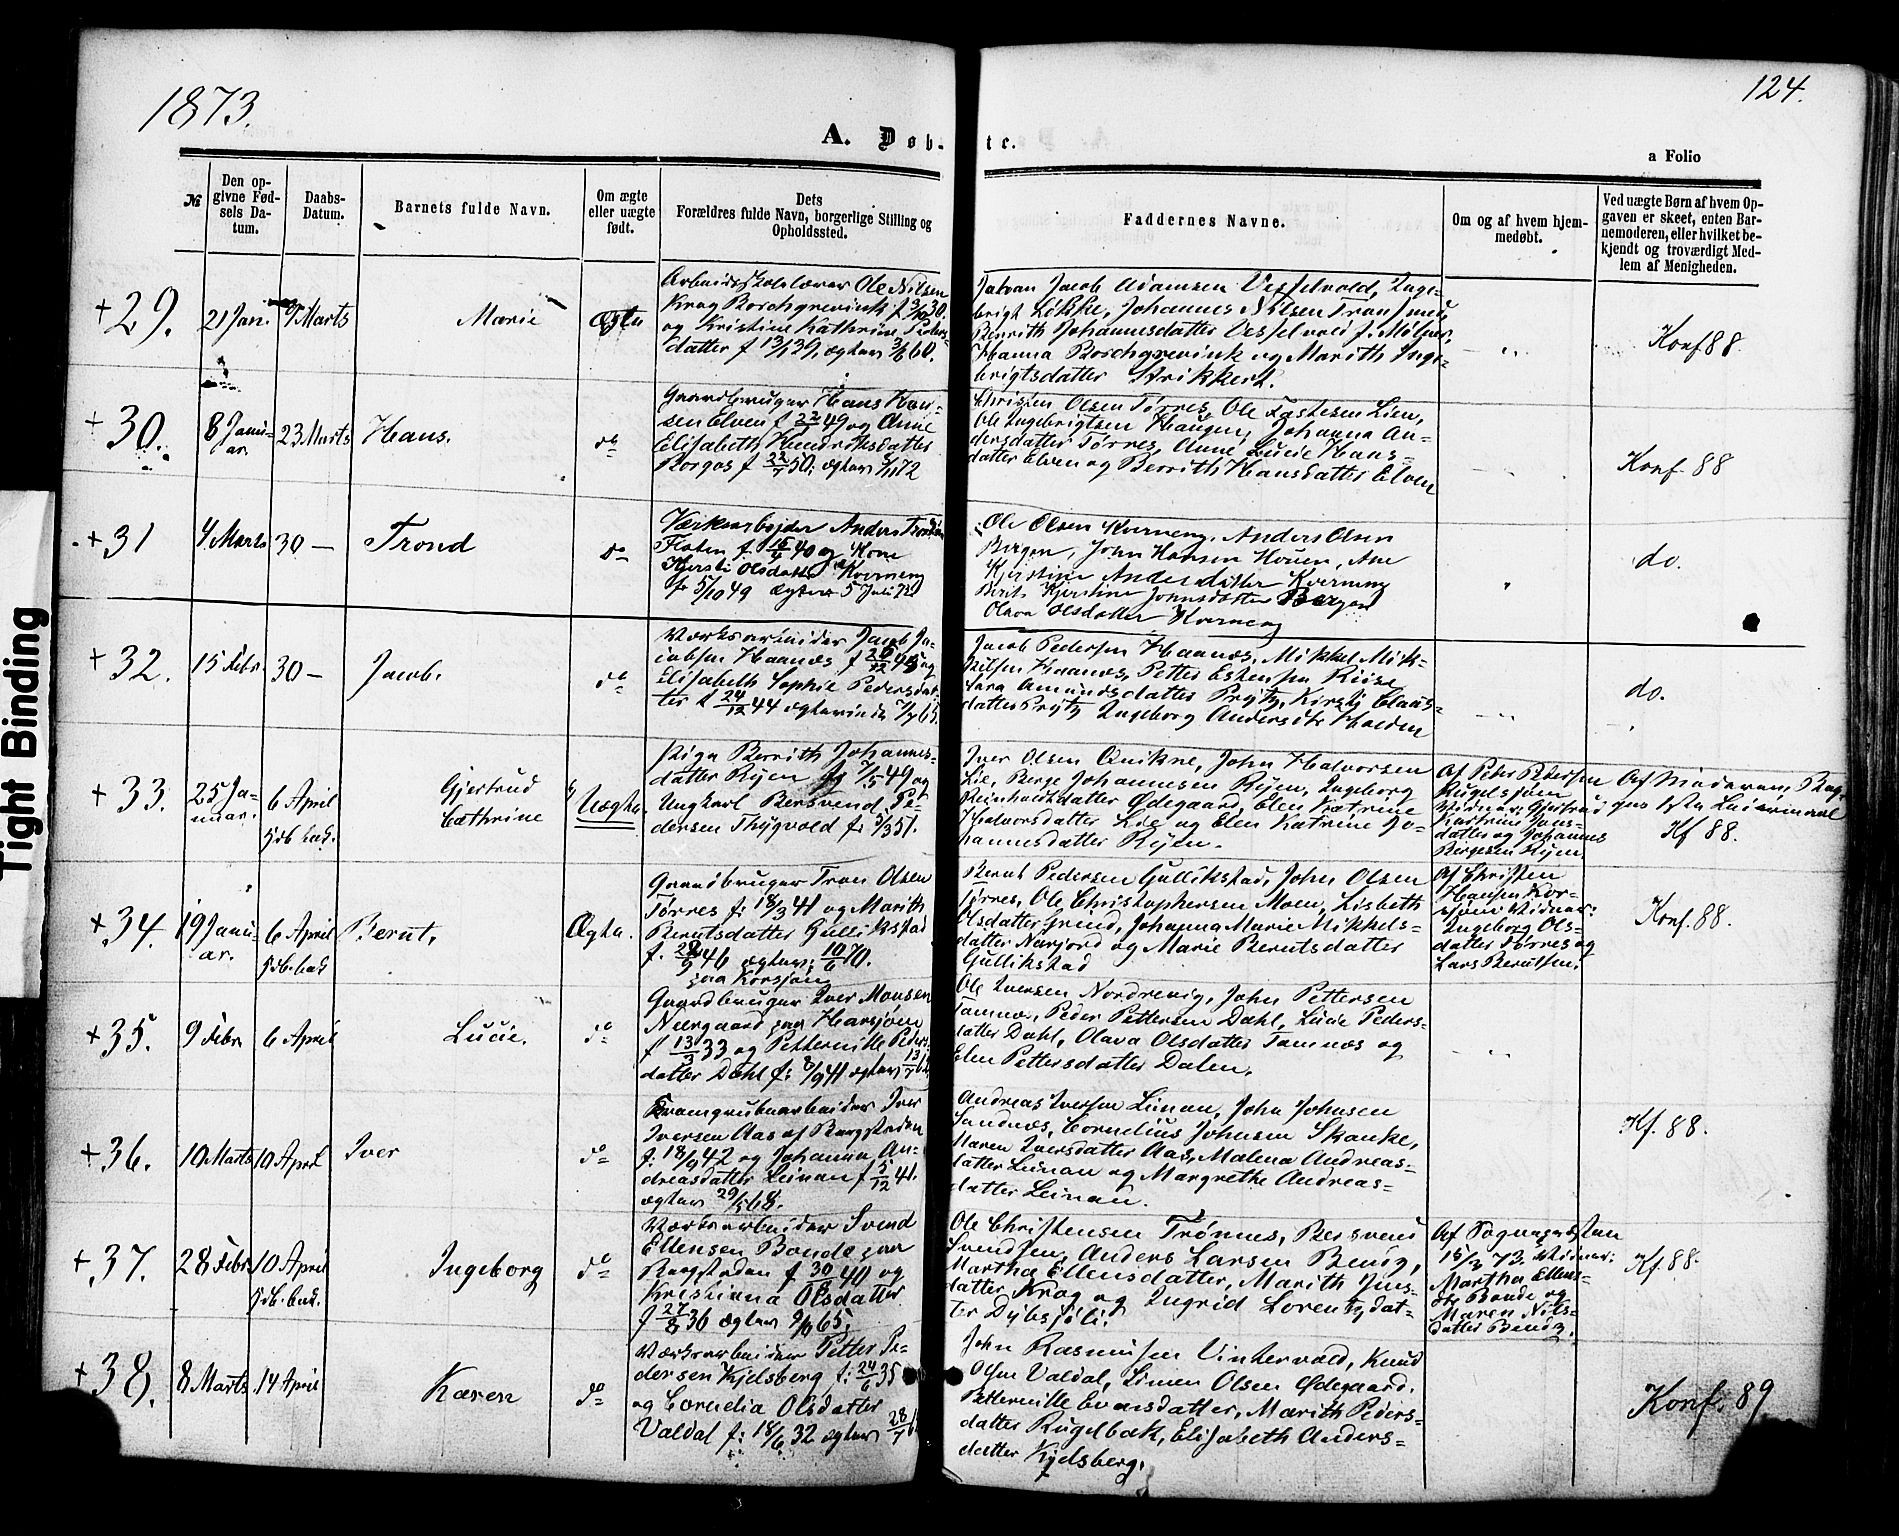 1873.
124.
A. Døb- te.
a Folio
№
Den op-
givne Fød-
sels Da-
tum.
Daabs-
Datum.
Barnets fulde Navn.
Om ægte
eller uægte
født.
Dets
Forældres fulde Navn, borgerlige Stilling og
Opholdssted.
Faddernes Navne.
Om og af hvem hjem-
medøbt.
Ved uægte Børn af hvem Op-
gaven er skeet, enten Bar-
nemoderen, eller hvilket be-
kjendt og troværdigt Med-
lem af Menigheden.
+29.
21 Jan.
9 Marts
Marie
Ægte
Arbeidsskolelærer Ole Nilsen
Krag Borchgrevink f. 3/10 30.
og Kristine Kathrine Peders-
datter f 13/1 39, ægtev 3/8 60.
Jacob Adamsen Vesselvold, Inge-
brigt Løkke, Johannes Nilsen
Berrith Johannesdatter Vesselvold
Hanna Borchgrevink og Marith Inge-
brigtsdatter Strikkert.
Konf 88.
+30.
8 Janu-
ar.
23 Marts
Hans.
do
Gaardbruger Hans Han-
sen Elven f 49 og Anne
Elisabeth Hendriksdatter
Borgos f 22/7 50, ægtev 72
Christen Olsen Tørres, Ole Lien,
Ole Ingebrigtsen Haugen, Johanna An-
dersdatter Tørres, Anne Lucie Hans-
datter Elven og Berrith Hansdatter Elven
Konf. 88
+31
4 Marts
30 —
Trond
do
Værksarbejder Anders
Floten f. 40 og Kone
Kjersti Olsdatter Kverneng
f. 5/10 49 ægtev 5 Juli 72
Ole Olsen Kverneng, Anders Olsen
Bergen, John Hansen Houen, Ane
Kjerstine Andersdatter Kverneng
Berit Kjerstine Johnsdatter Bergen
Olava Olsdatter Kverneng
do.
+32.
15 Febr
30 —
Jacob.
do
Værksarbeider Jacob Ja-
cobsen Haanæs f 26/12 43 og
Elisabeth Sophie Pedersdat-
ter f 24/12 44 ægteviede
Jacob Pedersen Haanæs, Mikkel Mik-
kelsen Haanæs, Petter Eskensen Riise
Sara Amundsdatter Prytz, Kirsti Claus-
datter Prytz Ingeborg Andersdtr Holden
do.
+33.
25 Ja-
nuar.
6 April
Gjertrud
Cathrine
Uægte.
Pige Berrith Johannes-
datter Ryen fg 7/5 49 og
Ungkarl Bersvend Pe-
dersen Thygvold f. 5/3 51.
Iver Olsen Qvikne, John Halvorsen
Lie, Berge Johannesen Ryen, Ingeborg
Reinholdtsdatter Ødegaard, Elen Katrine
Halvorsdatter Lie og Elen Katrine Jo-
hannesdatter Ryen.
Af Peter Pedersen
Rugelsjøen
Vidner: Gjertrud
Kathrine Jens-
datter og Johannes
Bergesen Ryen.
Af Moderen,
Kf 88.
+34.
19 Janu-
ar.
6 April
Bernt.
Ægte.
Gaardbruger Tron Olsen
Tørres f. 18/3 41 og Marith
Berntsdatter Gullikstad
f. 46 ægtev: 10/6 70.
paa Korsjøen
Bernt Pedersen Gullikstad, John Olsen
Tørres, Ole Christophersen Moen, Lisbeth
Olsdatter Grind, Johanna Marie Mikkels-
datter Narjord og Marie Berntsdatter
Gullikstad
Af Christen
Hansen Kor-
sjøen Vidner:
Ingeborg Ols-
datter Tørres og
Lars Berntsen.
Konf. 88.
+35.
9 Febr
6 April
Lucie.
do
Gaardbruger Iver Monsen
Nergaard paa Harsjøen
f 13/3 33 og Petternille Peders
datter Dahl f: 8/9 41 ægtev
Ole Iversen Nordrevig, John Pettersen
Tamnæs, Peder Pettersen Dahl, Lucie Peders-
datter Dahl, Olava Olsdatter Tamnæs og
Elen Pettersdatter Dalen.
+36.
10 Marts
10 April
Iver
do
Framgrubearbeider Iver
Iversen Aas af Bergstaden
f. 18/9 42 og Johanna An-
dreasdatter Leinan f 5/12 41.
ægtev 29/5 68.
Andreas Iversen Leinan, John Johnsen
Sandnæs, Cornelius Johnsen Skanke,
Maren Iversdatter Aas, Malena Andreas-
datter Leinan og Margrethe Andreas-
datter Leinan.
Kf. 88.
+37.
28 Febr
10 April
Ingeborg
do
Værksarbeider Svend
Ellensen Bonde paa
Bergstaden f 40 og
Kristiana Olsdatter
f 36 ægtev 65.
Ole Christensen Trønnes, Bersvend
Svendsen, Anders Larsen Bendz,
Martha Ellensdatter, Marith Jens-
datter Krog og Ingrid Lorentzdat-
ter Dybsjøli.
Af Sognepresten
15/3 73. Vidner:
Martha Ellens-
dtr Bonde og
Maren Nils-
datter Bendz.
Kf. 88.
+38.
8 Marts
14 April
Karen
do
Værksarbeider Petter Pe-
dersen Kjelsberg f: 24/6 35
og Cornelia Olsdatter
Valdal f: 18/6 32 ægtev 28/7
John Rasmusen Vintervold, Knud
Olsen Valdal, Simen Olsen Ødegaard.
Petternille Evensdatter, Marith Peders-
datter Rugelbak, Elisabeth Anders-
datter Kjelsberg.
Konf. 89
Tight Binding